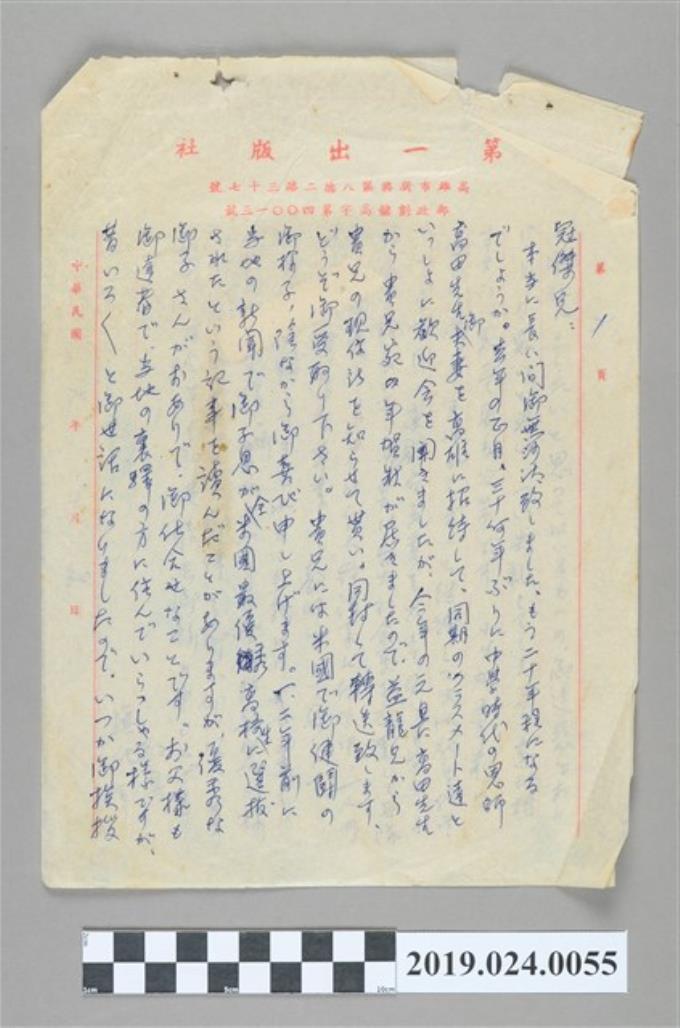 第一出版社
高雄市新興區八德二路三十七號
郵政劃儲高字第四〇〇一三號
第 1 頁
冠傑兄：
本当に長い間御無沙汰致しました。もう二十年程になる
でしょうか。去年の正月、三十何年ぶりに中學時代の恩師
高田先生御夫妻を高雄に招待して、同期のクラスメート達と
いっしょに歓迎会を開きましたが、今年の元旦に高田先生
から貴兄宛の年賀状が届きましたので、益龍兄から
貴兄の現住所を知らせて貰い、同封して轉送致します。
どうぞ御受取り下さい。貴兄には米國で御健闘の
御様子、陰ながら御喜び申し上げます。一、二年前に
当地の新聞で御子息が全米國最優秀高校生に選抜
されたという記事を讀んだことがありますが、優秀な
御子さんがおありで、御仕合せなことです。お父様も
御達者で、当地の裏驛の方に住んでいらっしゃる様ですが、
昔いろくと御世話になりましたので、いつか御挨拶
中華民國 年 月 日
2019.024.0055
1cm
5cm
10cm